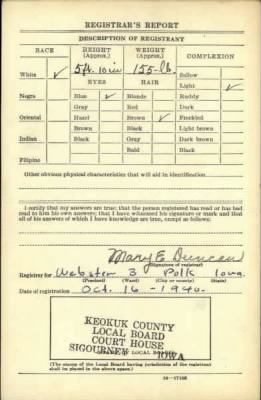 REGISTRAR'S REPORT
DESCRIPTION OF REGISTRANT
RACE HEIGHT (Approx.) WEIGHT (Approx.) COMPLEXION
White ✓ 5ft. 10 in 155-lb. Sallow
EYES HAIR Light ✓
Negro Blue ✓ Blonde Ruddy
Gray Red Dark
Oriental Hazel Brown ✓ Freckled
Brown Black Light brown
Indian Black Gray Dark brown
Bald Black
Filipino
Other obvious physical characteristics that will aid in identification
I certify that my answers are true; that the person registered has read or has had
read to him his own answers; that I have witnessed his signature or mark and that
all of his answers of which I have knowledge are true, except as follows:
Mary E. Duncan
(Signature of registrar)
Registrar for Webster 3 Polk Iowa.
(Precinct) (Ward) (City or county) (State)
Date of registration Oct. 16 - 1940.
KEOKUK COUNTY
LOCAL BOARD
COURT HOUSE
SIGOURNEY IOWA
LOCAL BOARD)
(The stamp of the Local Board having jurisdiction of the registrant
shall be placed in the above space.)